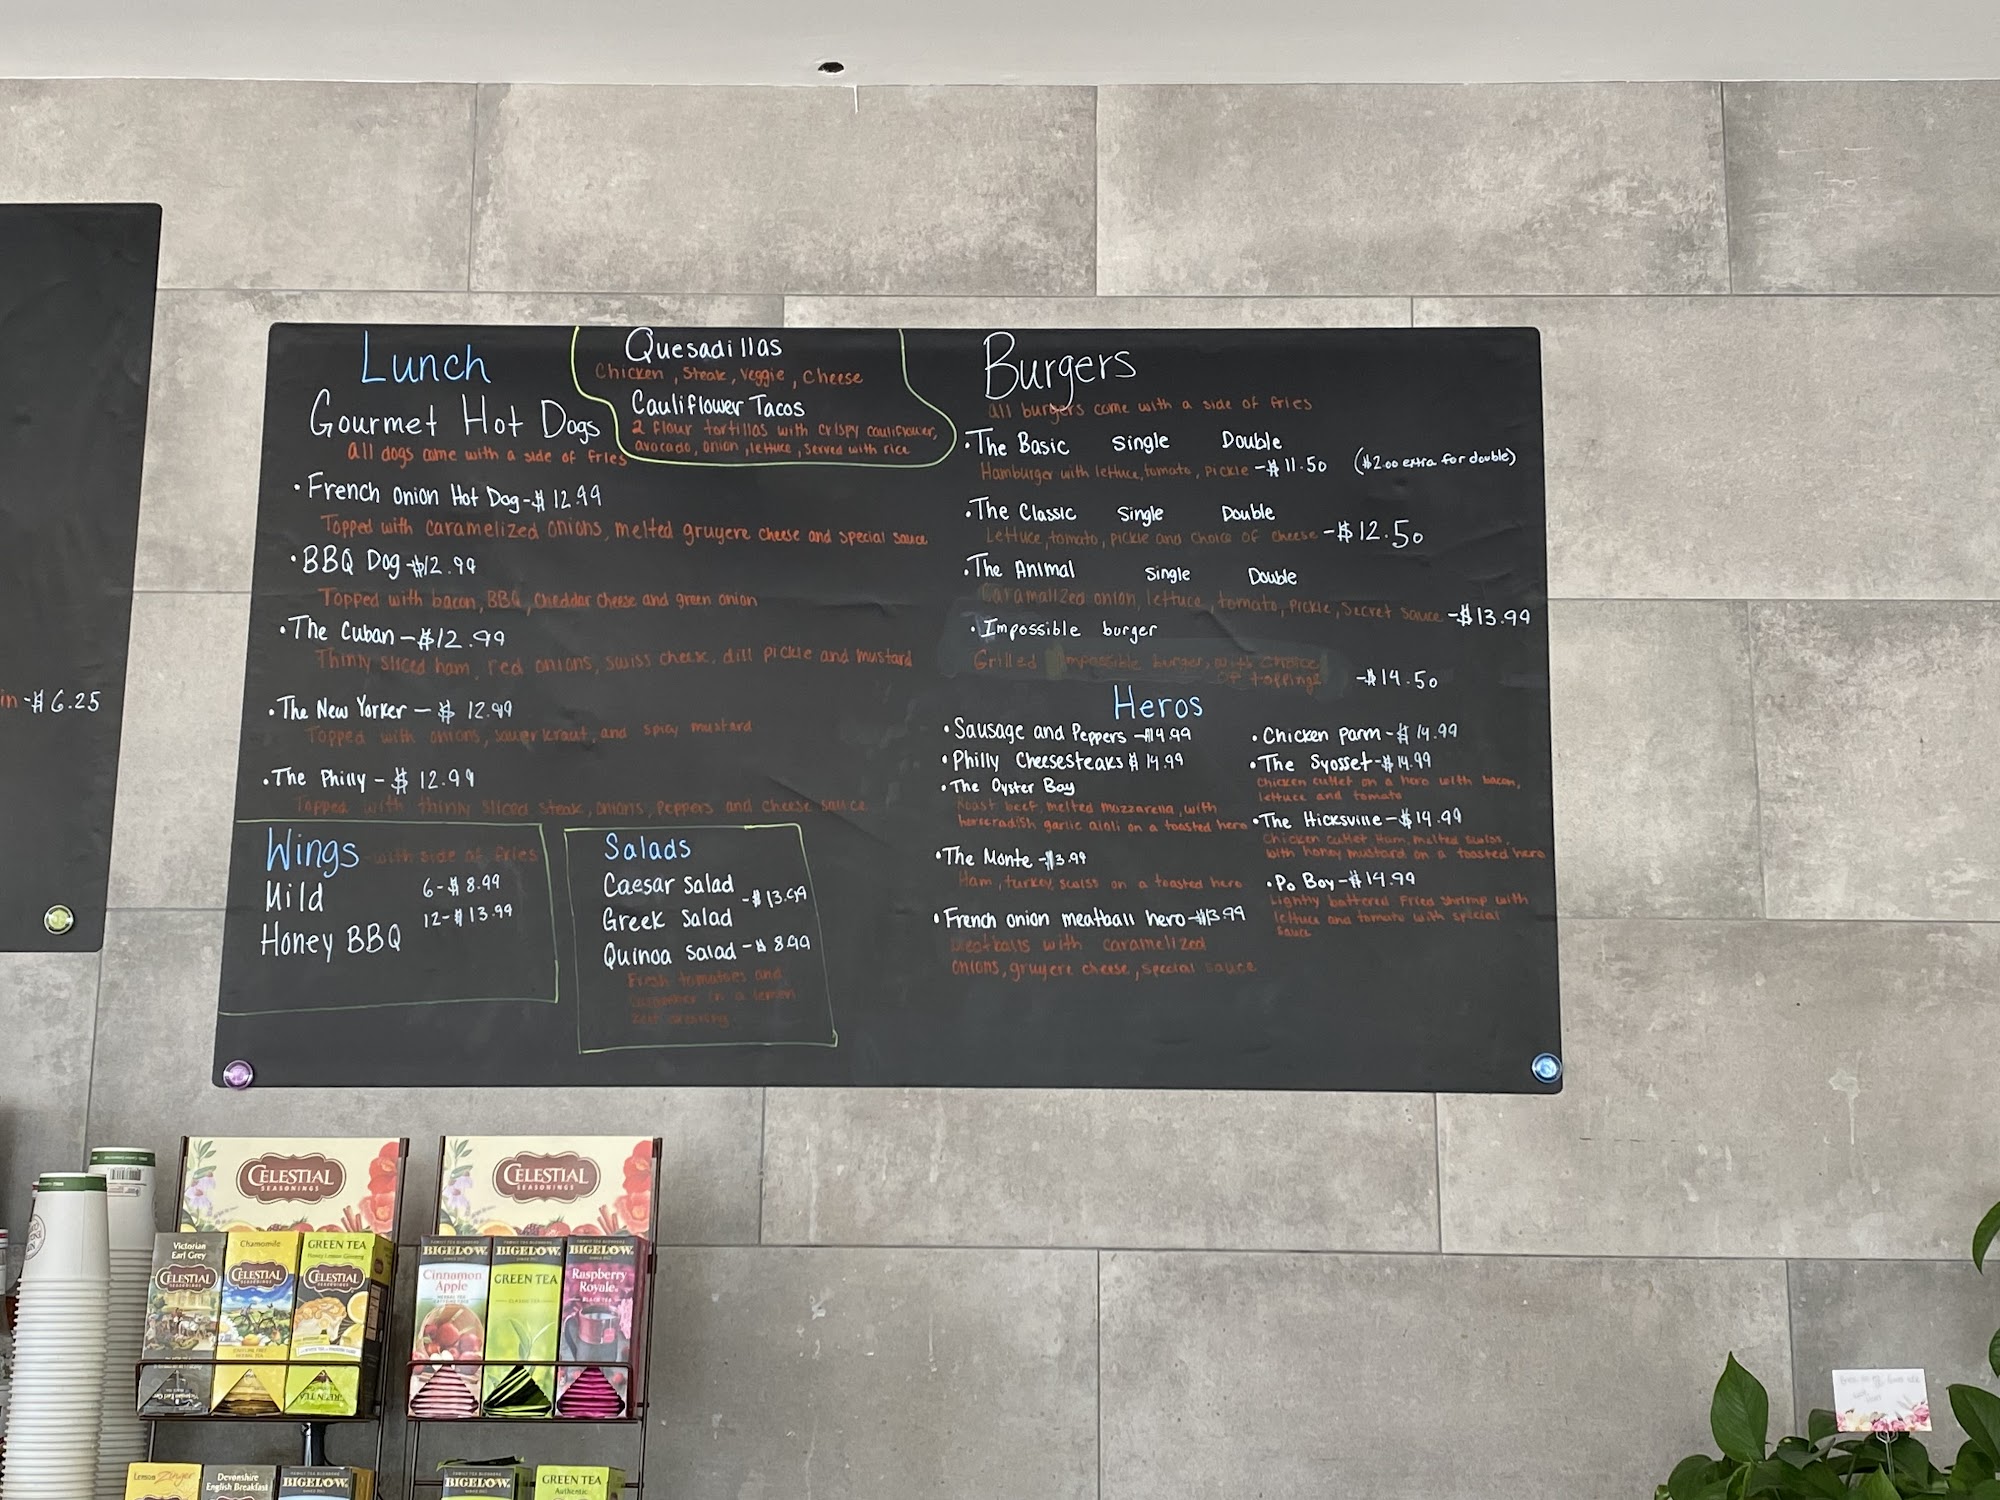 in -$6.25
Lunch
Gourmet Hot Dogs
all dogs come with a side of fries
• French Onion Hot Dog - $12.99
Topped with caramelized onions, melted gruyere cheese and special sauce
• BBQ Dog - $12.99
Topped with bacon, BBQ, cheddar cheese and green onion
• The Cuban - $12.99
Thinly sliced ham, red onions, swiss cheese, dill pickle and mustard
• The New Yorker - $12.99
Topped with onions, sauerkraut, and spicy mustard
• The Philly - $12.99
Topped with thinly sliced steak, onions, peppers and cheese sauce
Quesadillas
Chicken, Steak, Veggie, Cheese
Cauliflower Tacos
2 flour tortillas with crispy cauliflower,
avocado, onion, lettuce, served with rice
Wings - with side of fries
Mild
6 - $8.99
12 - $13.99
Honey BBQ
Salads
Caesar Salad
- $13.99
Greek Salad
Quinoa Salad - $8.99
Fresh tomatoes and
in a lemon
zest
Burgers
all burgers come with a side of fries
• The Basic Single Double
Hamburger with lettuce, tomato, pickle - $11.50 ($2.00 extra for double)
• The Classic Single Double
Lettuce, tomato, pickle and choice of cheese - $12.50
• The Animal Single Double
Caramalized onion, lettuce, tomato, pickle, secret sauce - $13.99
• Impossible burger
Grilled impossible burger, with choice
of toppings - $14.50
Heros
• Sausage and Peppers - $14.99
• Philly Cheesesteaks $14.99
• The Oyster Bay
Roast beef, melted mozzarella, with
horseradish garlic aioli on a toasted hero
• The Monte - $13.99
Ham, turkey, swiss on a toasted hero
• French onion meatball hero - $13.99
Meatballs with caramelized
onions, gruyere cheese, special sauce
• Chicken parm - $14.99
• The Syosset - $14.99
Chicken cutlet on a hero with bacon,
lettuce and tomato
• The Hicksville - $14.99
Chicken cutlet Ham, melted swiss,
with honey mustard on a toasted hero
• Po Boy - $14.99
Lightly battered fried shrimp with
lettuce and tomato with special
sauce
CELESTIAL
SEASONINGS
CELESTIAL
SEASONINGS
Victorian
Earl Grey
CELESTIAL
Chamomile
CELESTIAL
GREEN TEA
Honey Lemon Ginseng
CELESTIAL
BIGELOW
Cinnamon
Apple
HERBAL TEA
BIGELOW
GREEN TEA
CLASSIC TEA
BIGELOW
Raspberry
Royale
BLACK TEA
Victorian
Earl Grey
GREEN TEA
Lemon Zinger
Devonshire
English Breakfast
BIGELOW
BIGELOW
GREEN TEA
Authentic